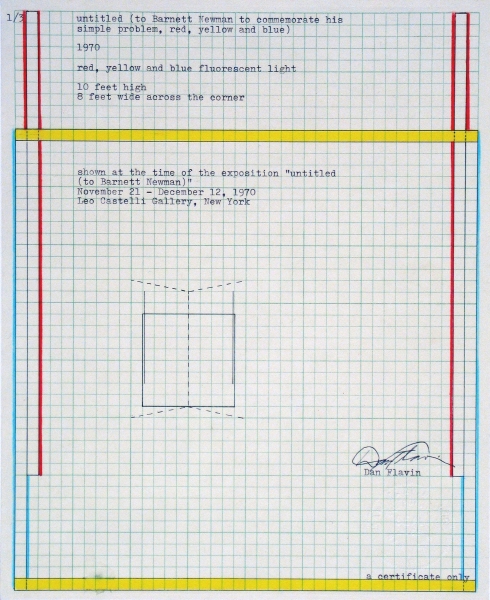 1/3
untitled (to Barnett Newman to commemorate his
simple problem, red, yellow and blue)
1970
red, yellow and blue fluorescent light
10 feet high
8 feet wide across the corner
shown at the time of the exposition "untitled
(to Barnett Newman)"
November 21 - December 12, 1970
Leo Castelli Gallery, New York
Dan Flavin
Dan Flavin
a certificate only